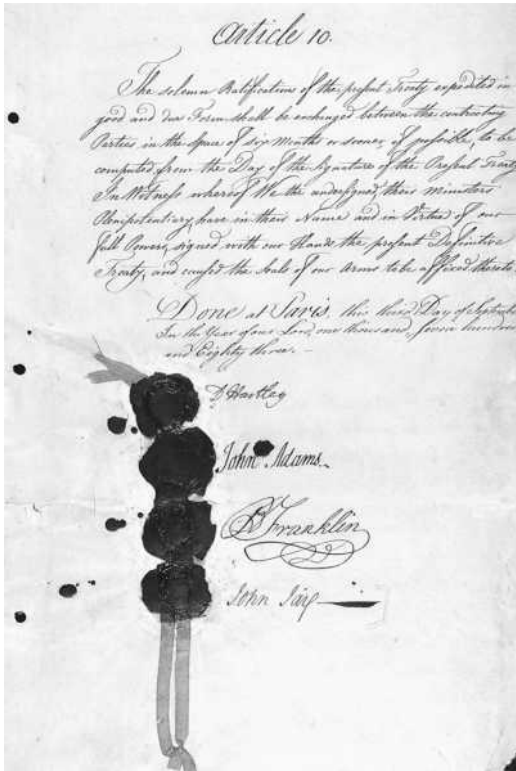 Article 10.
The solemn Ratifications of the present Treaty expedited in
good and due Form shall be exchanged between the contracting
Parties in the Space of Six Months or sooner if possible, to be
computed from the Day of the Signature of the Present Treaty.
In Witness whereof We the undersigned their Ministers
Plenipotentiary have in their Name and in Virtue of our
Full Powers, signed with our Hands the present Definitive
Treaty, and caused the Seals of our Arms to be affixed thereto.
Done at Paris, this third Day of September
In the Year of our Lord, one thousand, seven hundred
and Eighty three.-
D Hartley
John Adams.
B Franklin
John Jay